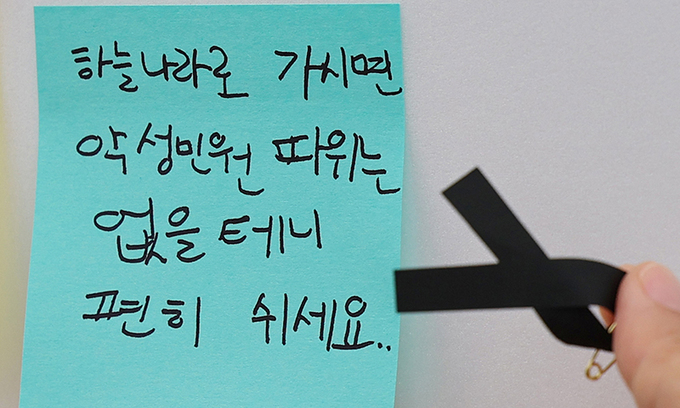 하늘나라로 가시면
악성민원 따위는
없을테니
편히 쉬세요..